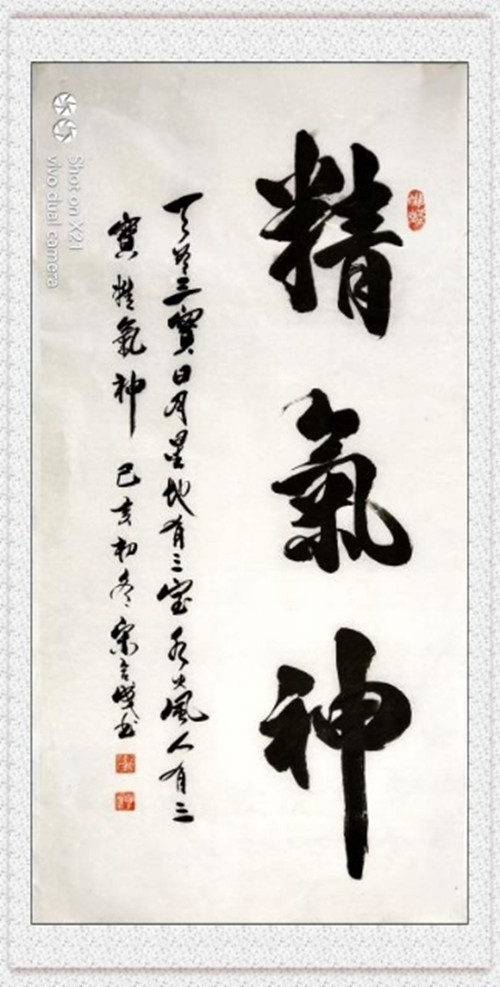 精氣神
天有三寶日月星地有三宝水火風人有三
寶精氣神 己亥初冬宋書
Shot on X21
vivo dual camera